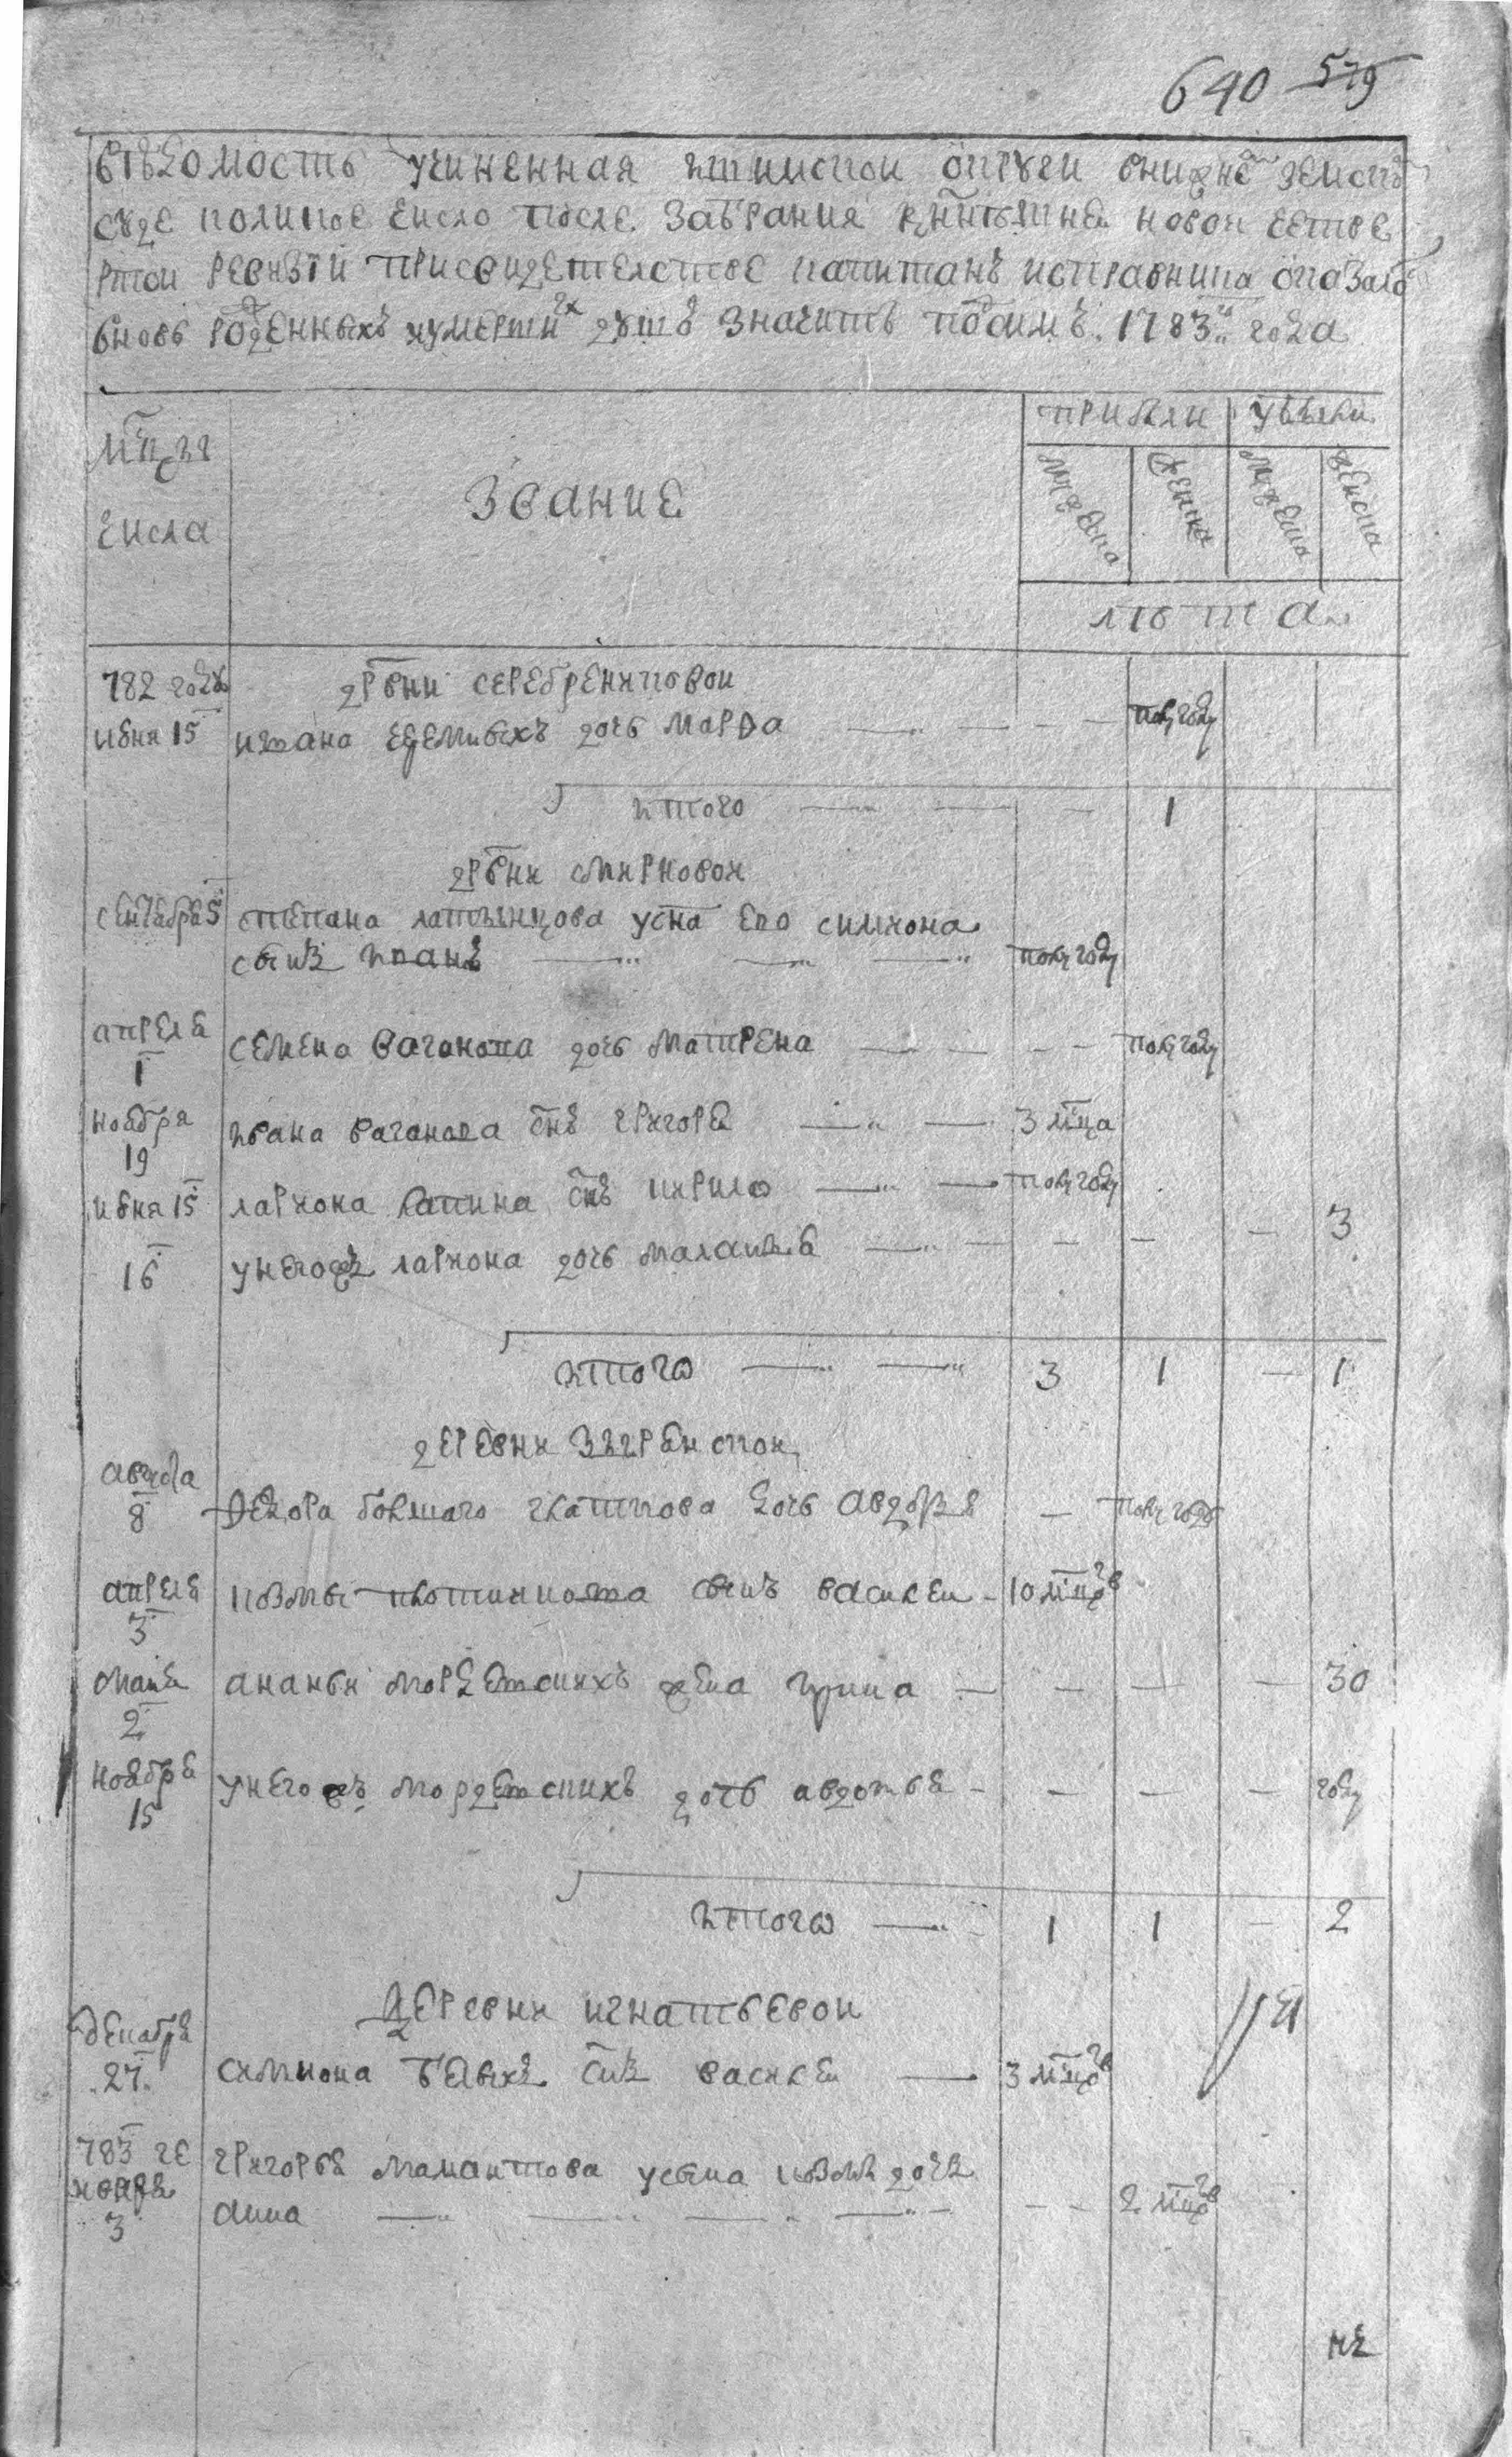 640 579
ведомость учиненная ишимскои округи внижне земско
суде коликое число после забрания книпешнеи новои четве
ртои ревизии присвидетелстве капитанъ исправника оказало
вновь роденныхъ иумерших душъ значитъ подсимъ 1783 г года
мцы
числа
звание
прибыли убыли
мужеска женска мужеска женска
лѣта
782 году деревни серебрениковои
июня 15 ивана едемскихъ дочь марѳа — — — — полугоду
итого — — — 1
дрвни смирновои
сентября 5 степана латынцова усна ево симиона
сынъ иванъ — — — полугоду
апреля
1
семена ваганова дочь матрена — — — — полугоду
ноября
19
ивана ваганова снъ григореи — — 3 мца
июня 15 лариона лапина снъ кирило — — полугоду
16 унегожъ лариона дочь маланья — — — — — 3
итого — — 3 1 — 1
деревни зырянскои
августа
8
ѳедора болшаго глаткова дочь авдотья — полугоду
апреля
3
козмы плотникова сынъ василеи — 10 мцов
маия
2
ананьи мордетскихъ жена ирина — — — — 30
ноября
15
унегожъ мордетскихъ дочь авдотья — — — — году
итого — 1 1 — 2
деревни игнатьевои
декабря
27
симиона белыхъ снъ василеи — 3 мцов
783 ге
генваря
3
григорья мамантова усына козмы дочь
анна — — — — — — 2 мцов